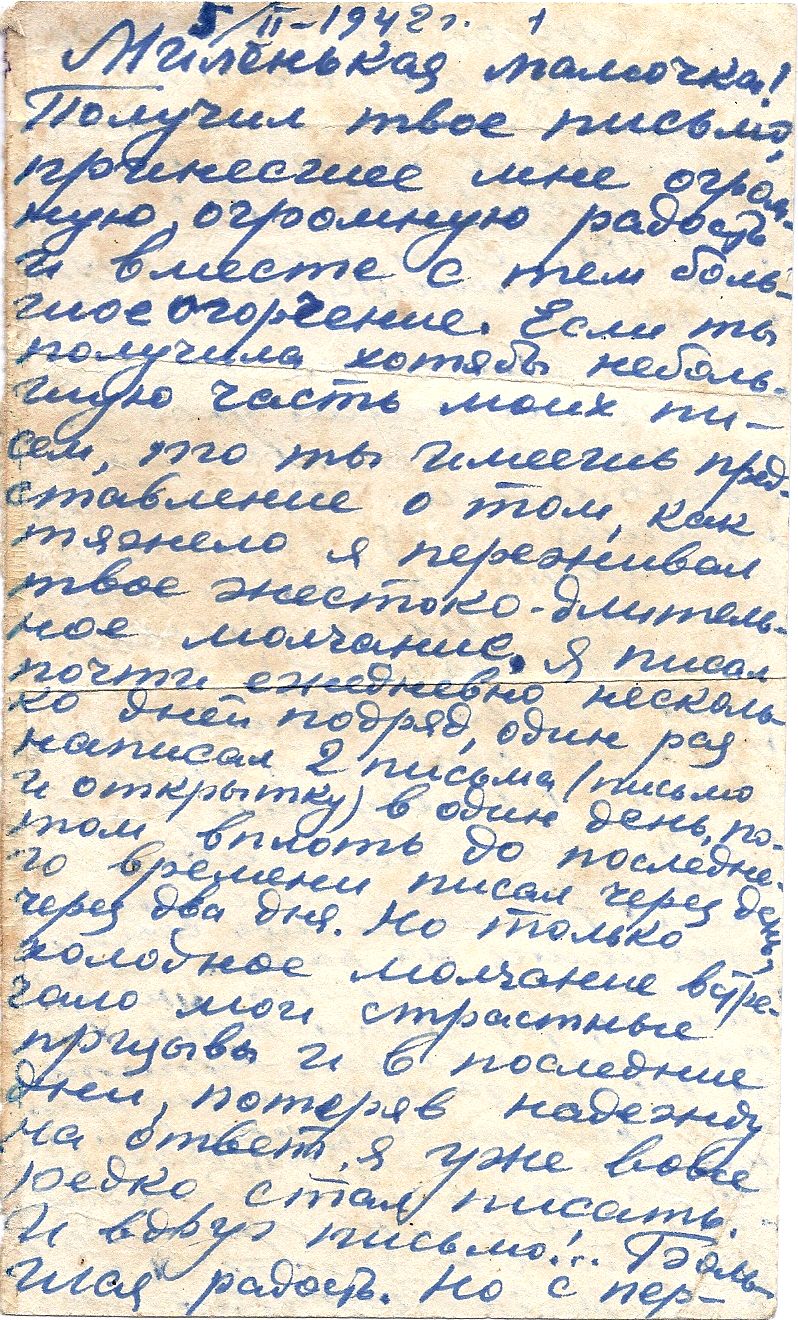 5/II-1942 г. 1
Миленькая мамочка!
Получил твое письмо,
принесшее мне огром-
ную, огромную радость
и вместе с тем боль-
шое огорчение. Если ты
получила хотябы неболь-
шую часть моих пи-
сем, то ты имеешь пред-
ставление о том, как
тяжело я переживал
твое жестоко-длитель-
ное молчание. Я писал
почти ежедневно несколь
ко дней подряд, один раз
написал 2 письма (письмо
и открытку) в один день, по-
том вплоть до последне-
го времени писал через день,
через два дня. Но только
холодное молчание встре-
чало мои страстные
призывы и в последние
дни, потеряв надежду
на ответ, я уже вовсе
редко стал писать.
И вдруг письмо!.. Боль-
шая радость. Но с пер-